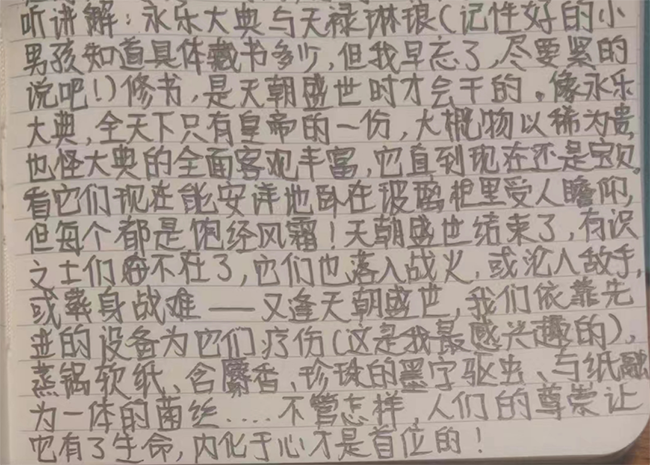 听讲解：永乐大典与天禄琳琅（记性好的小
男孩知道具体藏书多少，但我早忘了，尽要紧的
说吧！）修书，是天朝盛世时才会干的。像永乐
大典，全天下只有皇帝的一份，大概物以稀为贵，
也怪大典的全面客观丰富，它直到现在还是宝贝。
看它们现在能安详地卧在玻璃柜里受人瞻仰，
但每个都是饱经风霜！天朝盛世结束了，有识
之士们不在了，它们也落入战火，或沦入敌手，
或葬身战难——又逢天朝盛世，我们依靠先
进的设备为它们疗伤（这是我最感兴趣的），
蒸锅软纸、含麝香、珍珠的墨字驱虫、与纸融
为一体的菌丝....不管怎样，人们的尊崇让
它有了生命，内化于心才是首位的！